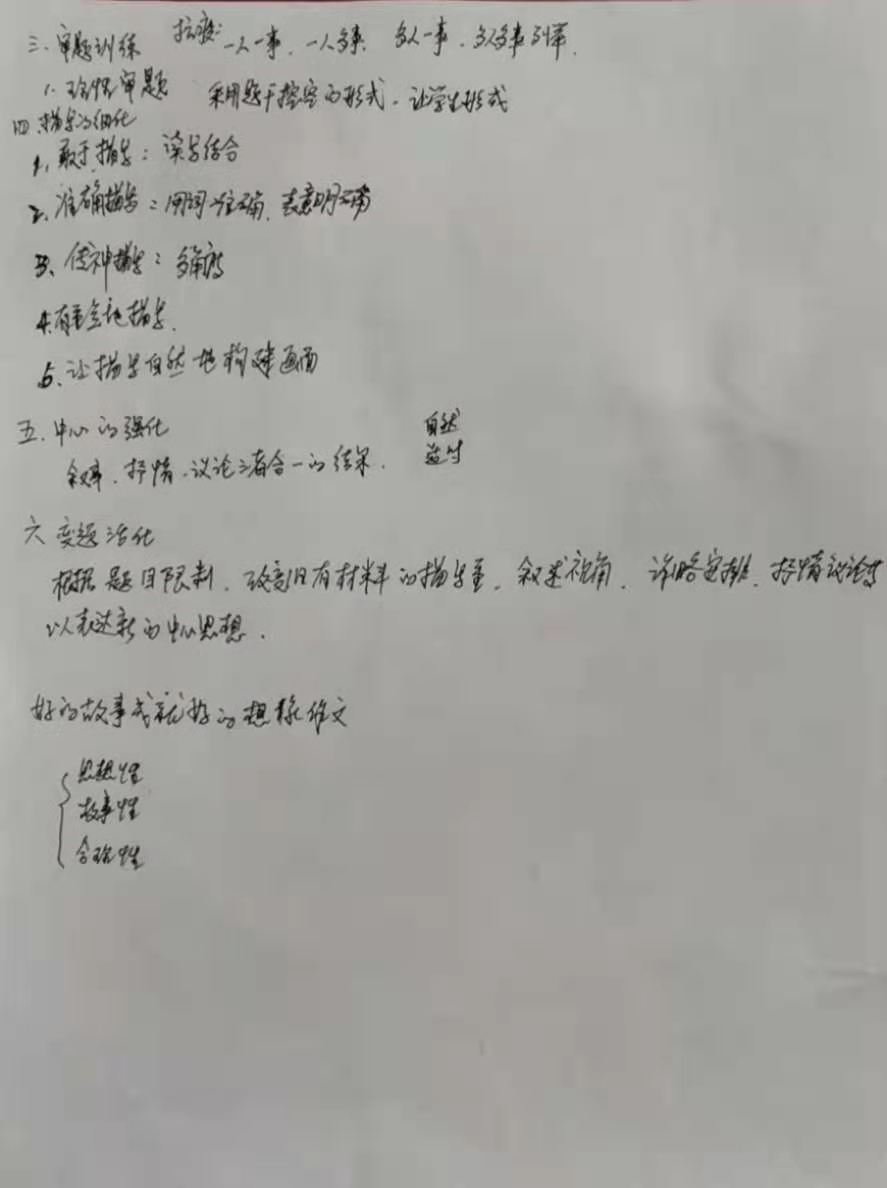 三、审题训练 抗疫: 一人一事、一人多事、多人一事、多人多事列举.
1. 理性审题 采用题干挖空的形式、让学生形式
四、描写的细化
1、敢于描写：读写结合
2、准确描写：用词准确、表意明确
3、传神描写：多角度
4.有重点地描写.
5、让描写自然地构建画面
五、中心的强化 自然
叙事、抒情、议论三者合一的结果.
六 变题活化
根据题目限制、改变旧有材料的描写重、叙述视角、详略安排、抒情议论
以表达新的中心思想.
好的故事成就好的想象作文
思想性
故事性
合理性